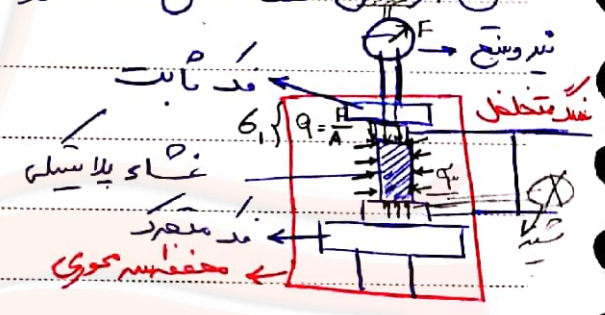 F
نیروسنج
فک ثابت
سنگ متخلخل
σ₁ { q = F/A
غشاء پلاستیکی
σ₃
فک متحرک
شیر
محفظه سه محوری